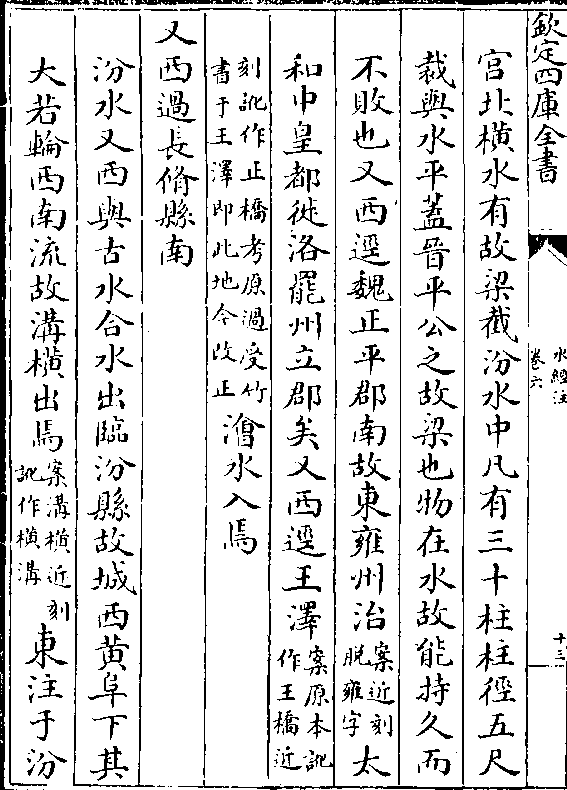 欽定四庫全書
水經注
卷六
十三
宫北橫水有故梁截汾水中凡有三十柱柱徑五尺
裁與水平蓋晉平公之故梁也物在水故能持久而
不敗也又西逕魏正平郡南故東雍州治案近刻脫雍字太
和中皇都徙洛罷州立郡矣又西逕王澤案原本訛作王橋近
刻訛作正橋考原過受竹書于王澤即此地今改正澮水入焉
又西過長脩縣南
汾水又西與古水合水出臨汾縣故城西黄阜下其
大若輪西南流故溝橫出焉案溝橫近刻訛作橫溝東注于汾